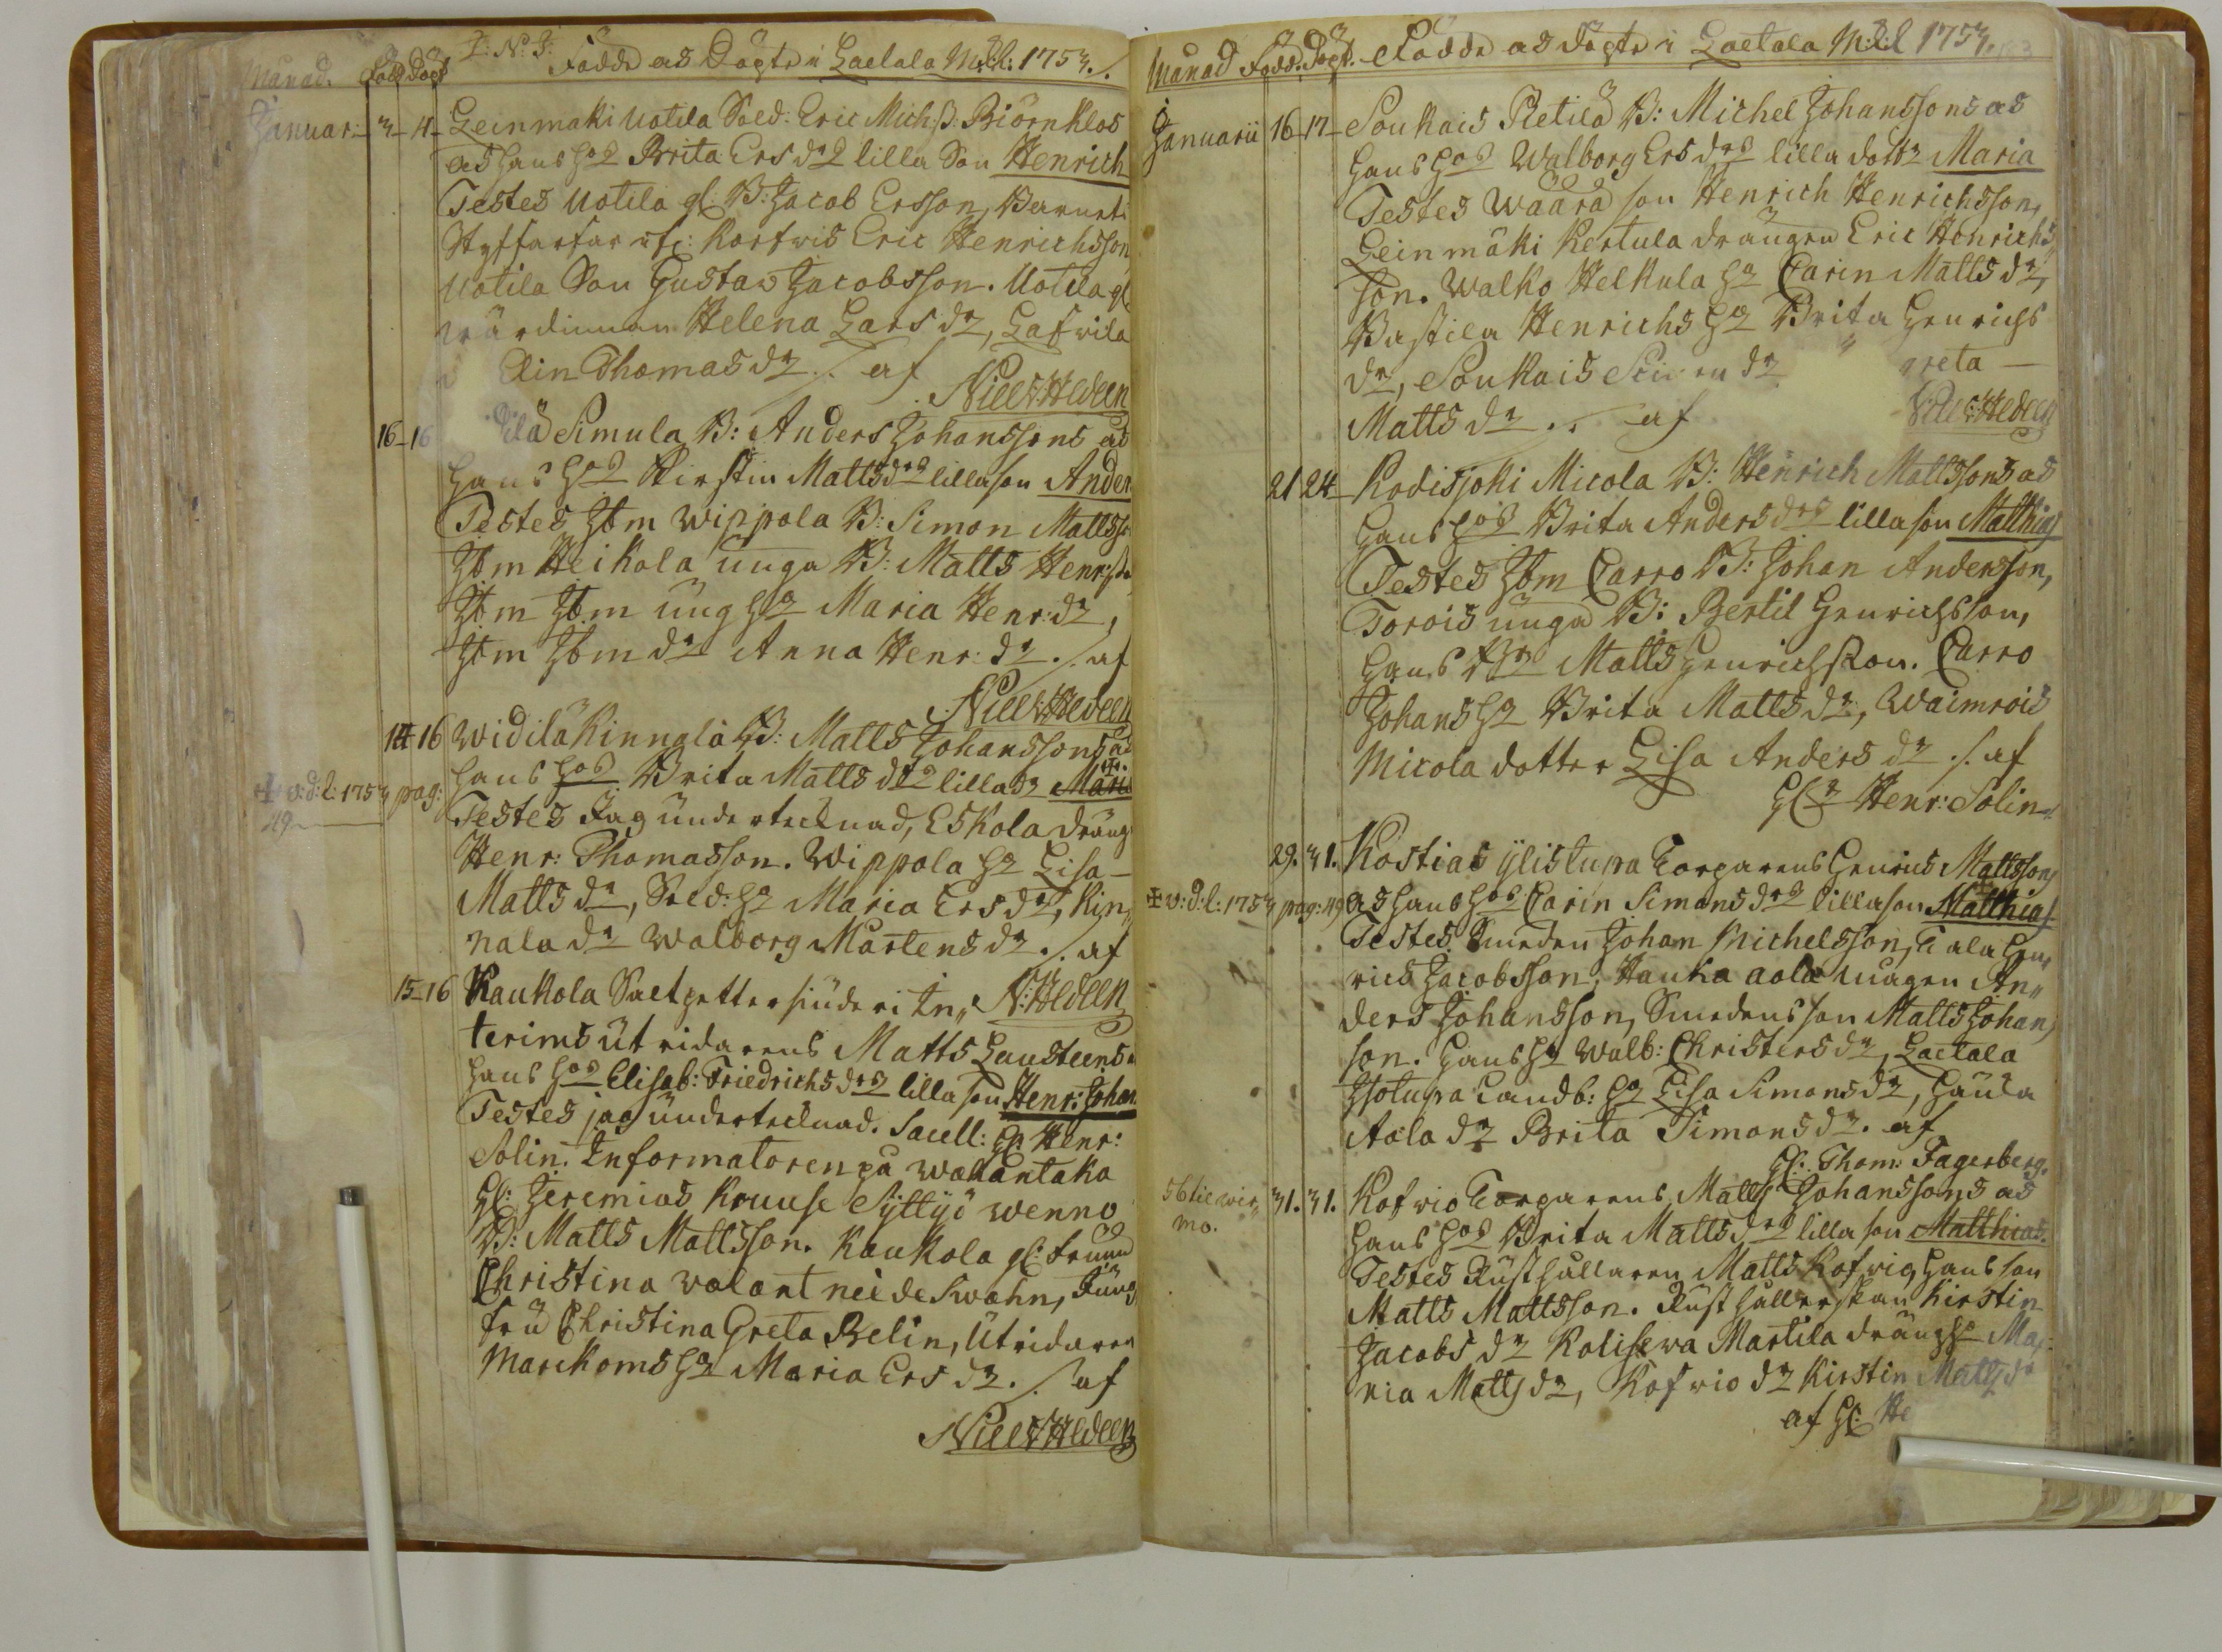 I: N: J:
Månad. Född Döpt Födde och Döpte i Laetala M:k:l: 1753.
Januar: 3 4 Leinmäki Uotila Sold: Eric Mich:ß: Biörnklos
och hans ho? Brita Ersdrs lilla Son Henrich
Testes Uotila gl: B: Jacob Ersson,
Kortvis Eric Henrichsson
Uotila Son Gustav Jacobsson. Uotila gl
wärdinnan Helena Larsdr, Lafwila
Elin Thomasdr ./. af
Niels Hedeen
16 16 Simula B: Anders Johanssons och
hans ho? Kirstin Mattsdrs lilla son Ander
Testes Jbm Wippola B: Simon Mattss
Jbm Heikola unga B: Matts Henr:
Jbm Jbm ung h? Maria Henr:dr,
Jbm Jbm dr Anna Henr:dr ./. af
Niels Hedeen
14 16 Widilä Kinnala B: Matts Johanssons och
hans ho? Brita Mattsdrs lilla dr Maria
✝ v:d:l: 1753 pag: 49
Testes Jag undertecknad, Eskola dräng
Henr: Thomasson. Wippola h? Lisa
Mattsdr, Sold: h? Maria Ersdr, Kin,
nala dr Walborg Mårtensdr ./. af
N: Hedeen
15 16 Kaukola Saltpettersiuderi In,,
terims utridarens Matts Lausteens
hans ho? Elisab: Friedrichsdrs lilla son Henr: Johan
Testes jag undertecknad. Sacell: H: Henr:
Solin. Informatoren på Wallantaka
H: Jeremias Kruuse Syttyö Wenno
B: Matts Mattsson. Kaukola gl: fruun
Christina Walant neé de Swahn, Jung
fru Christina Greta Belin, Utridaren
Marckoms h? Maria Ersdr ./. af
Niels Hedeen
Månad Född. Döpt. Födde och Döpte i Laetala M:k:l 1753.
Januarii 16 17 Soukais Pietilä B: Michel Johanssons och
hans ho? Walborg Ersdrs lilla dottr Maria
Testes Wäärä son Henrich Henrichsson,
Leinmäki Kertula drängen Eric Henrichs
son. Walko Helkula h? Carin Mattsdr,
Bastila Henrichs h? Brita Henrichs
dr, Soukais greta
Mattsdr .. af
Niels Hedeen
21 24 Kodisjoki Micola B: Henrich Mattssons och
hans ho? Brita Andersdrs lilla son Matthias
Testes Jbm Carro B: Johan Andersson,
Torois unga B: Bertil Henrichsson,
hans Matts Henrichsson. Carro
Johans h? Brita Mattsdr, Waimrois
Micola dotter Lisa Andersdr ./. af
H: Henr: Solin
29. 31. Kostias ylistupa Torparens Henrics Mattssons
✝ v:d:l: 1753 pag: 49 och hans ho? Carin Simonsdrs lilla son Matthias
Testes Smeden Johan Michelsson, Tala Hen,
rics Jacobsson, Hauka aola mågen An,,
ders Johansson, Smedens son Matts Johan,
son. Hans h? Walb: Christersdr, Laetala
Isotupa Landb: h? Lisa Simonsdr, Hauka
Aola dr Brita Simonsdr. af
H: Thom: Fagerberg.
31. 31. Kofwio Torparens Matts Johanssons och
mo.
hans ho? Brita Mattsdrs lilla son Matthias.
Testes Rusthållaren Matts Kofwio, hans son
Matts Mattsson. Rusthållerskan Kirstin
Jacobsdr Kolisewa Martila dräng h? Ma,
ria Mattsdr, Kofwio dr Kirstin Mattsdr
af H: He